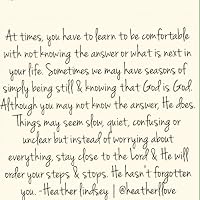 At times, you have to learn to be comfortable
with not knowing the answer or what is next in
your life. Sometimes we may have seasons of
simply being still & knowing that God is God.
Although you may not know the answer, He does.
Things may seem slow, quiet, confusing or
unclear but instead of worrying about
everything, stay close to the Lord & He will
order your steps & stops. He hasn't forgotten
you. -Heather Lindsey | @heatherllove